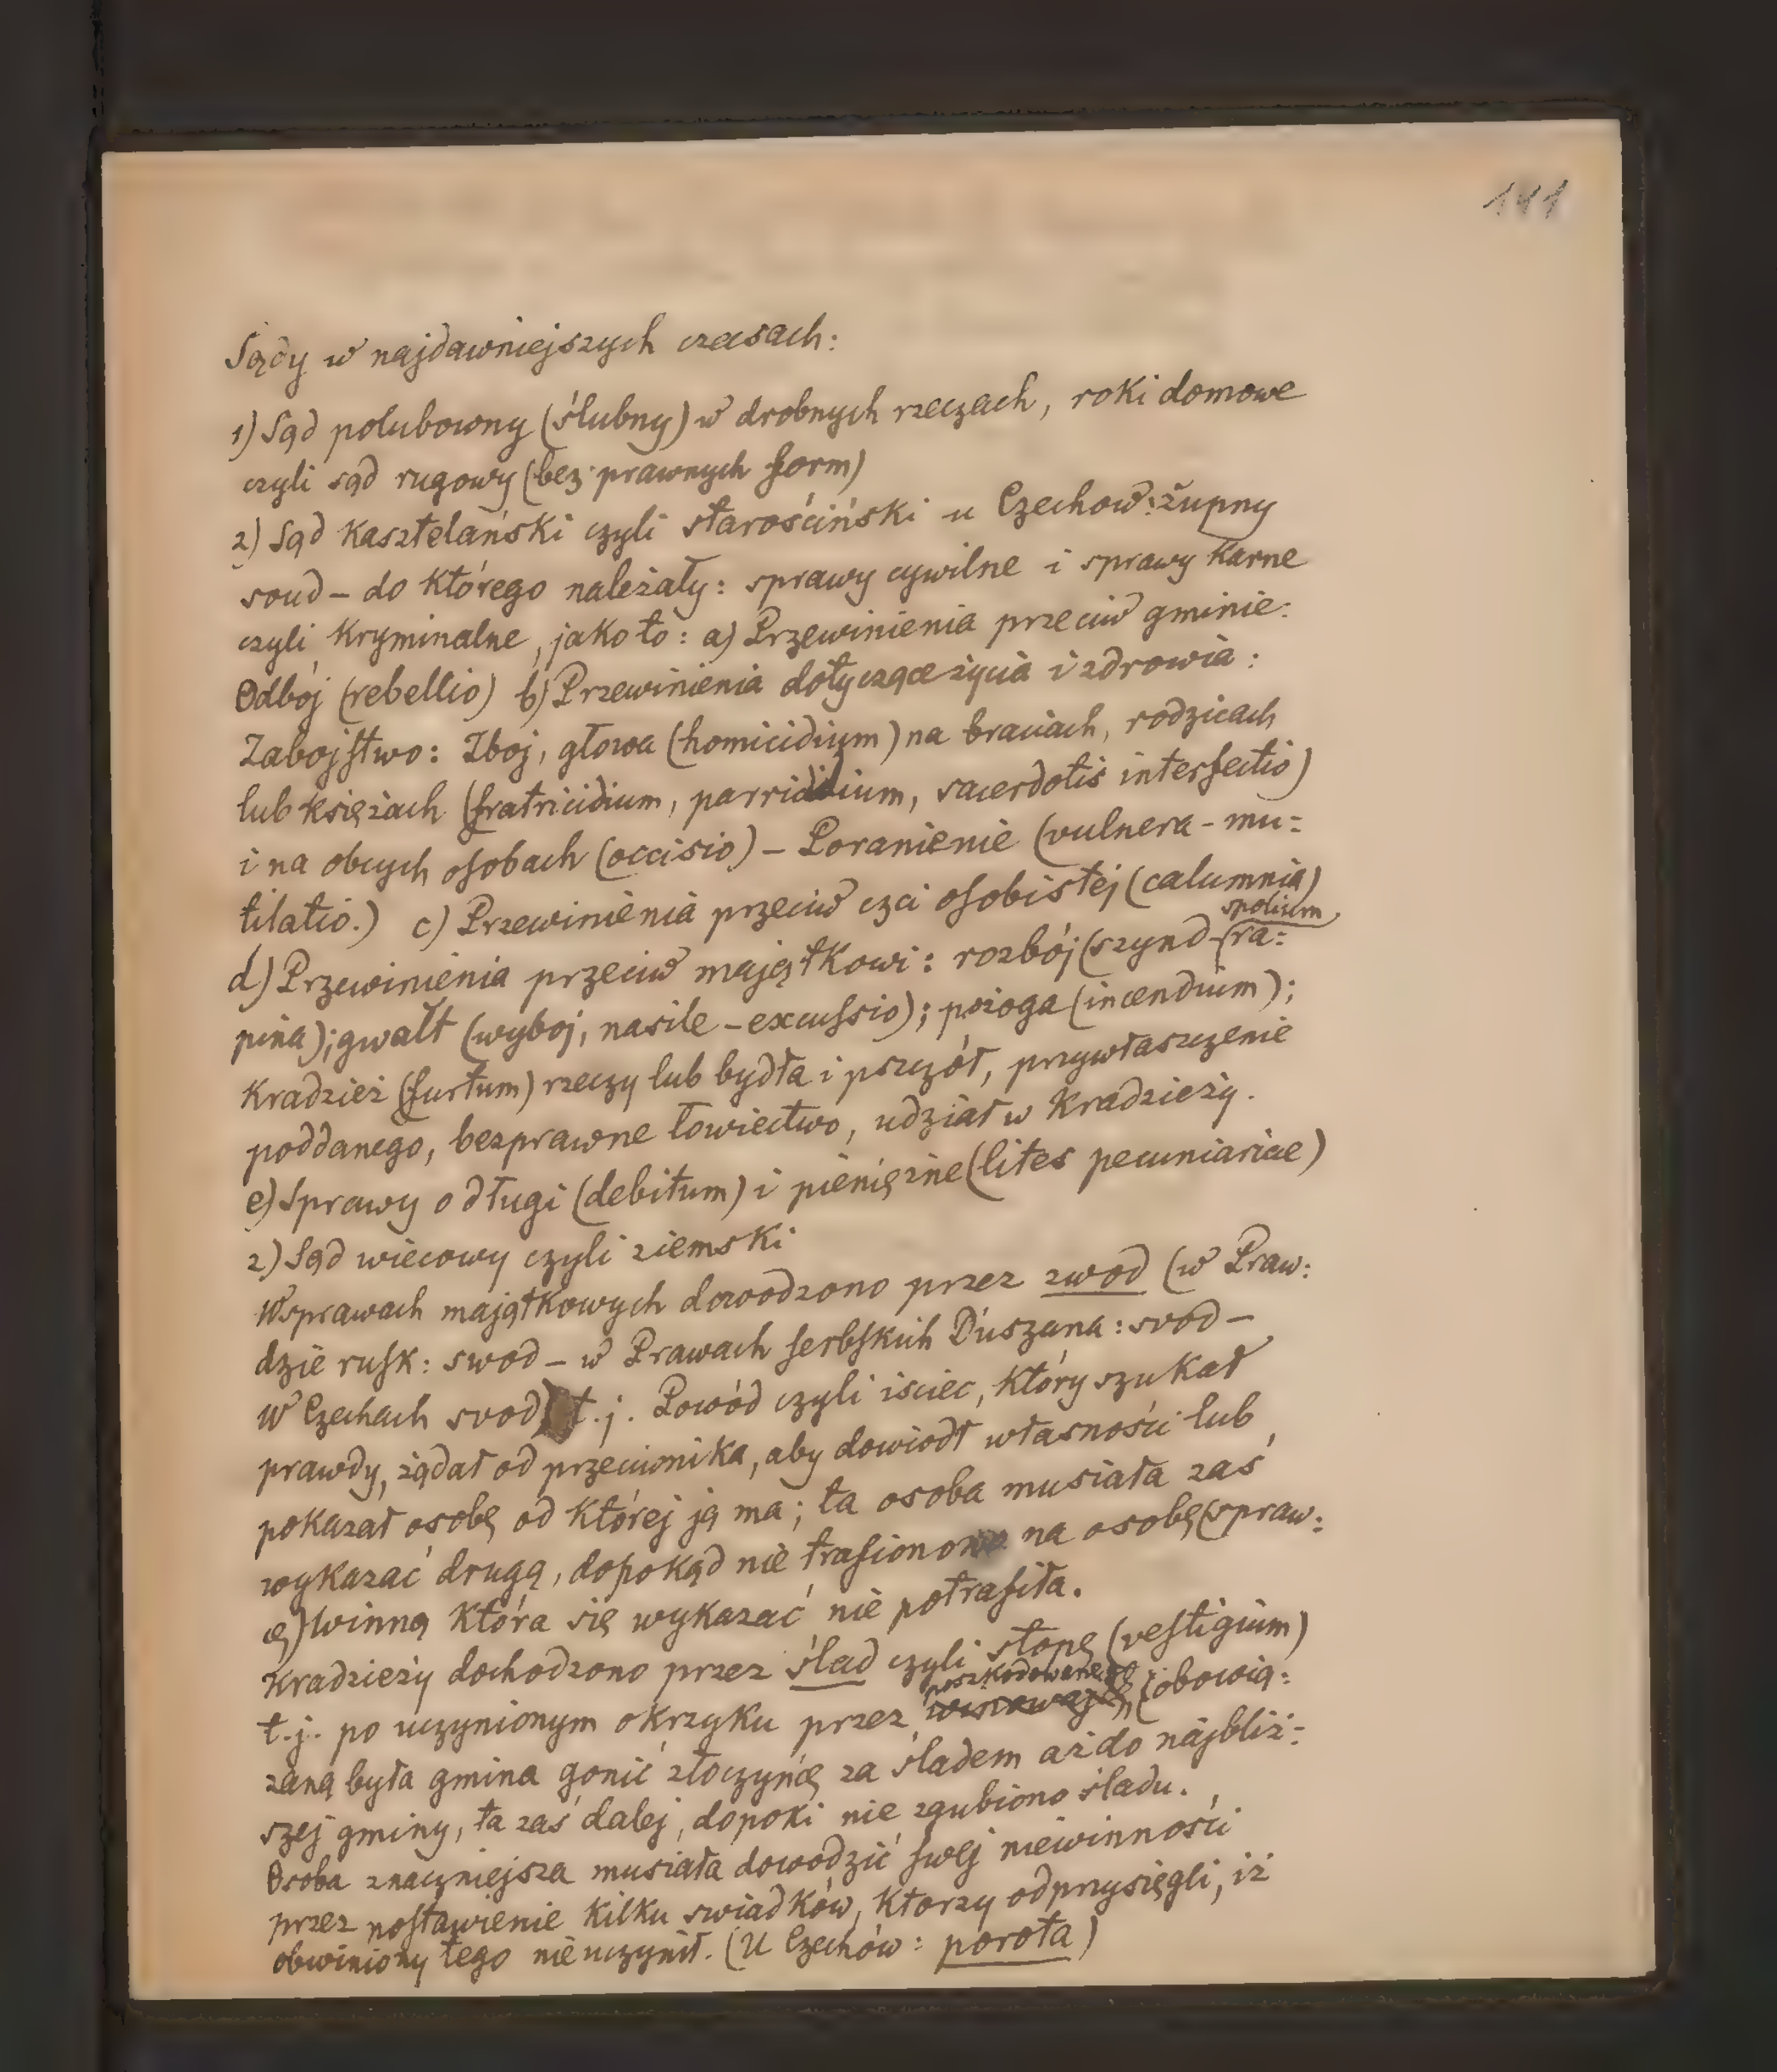 141
Sądy w najdawniejszych czasach:
1) Sąd polubowny (ślubny) w drobnych rzeczach, roki domowe
czyli sąd rugowy (bez prawnych form)
2) Sąd kasztelański czyli starościński u Czechow: župny
soud – do którego należały: sprawy cywilne i sprawy karne
czyli kryminalne, jako to: a) Przewinienia przeciw gminie:
Odbój (rebellio) b) Przewinienia dotyczące życia i zdrowia:
Zabojstwo: Zboj, głowa (homicidium) na braciach, rodzicach
lub księżach (fratricidium, parricidium, sacerdotis interfectio)
i na obcych osobach (occisio) – Poranienie (vulnera – mu=
tilatio.) c) Przewinienia przeciw czci osobistej (calumnia)
d) Przewinienia przeciw majętkowi: rozbój (szynd – spolium, (ra=
pina); gwałt (wyboj, nasile – excussio); pożoga (incendium);
kradzież (furtum) rzeczy lub bydła i pszczół, przywłaszczenie
poddanego, bezprawne łowiectwo, udział w kradzieży.
e) Sprawy o długi (debitum) i pieniężne (lites pecuniariae)
2) Sąd wiecowy czyli ziemski
W sprawach majątkowych dowodzono przez zwod (w Praw:
dzie rusk: swod – w Prawach serbskich Duszana: svod –
W Czechach svod) t.j. Powód czyli isciec, który szukał
prawdy, żądał od przeciwnika, aby dowiodł własności lub
pokazał osobę od której ją ma; ta osoba musiała zaś
wykazać drugą, dopokąd nie trafiono na osobę (spraw:
cę) winną która się wykazać nie potrafiła.
Kradzieży dochodzono przez ślad czyli stopę (vestigium)
t.j. po uczynionym okrzyku przez poszkodowanego obowią:
zaną była gmina gonić złoczyńcę za śladem aż do najbliż-
szej gminy, ta zaś dalej, dopoki nie zgubiono śladu.
Osoba znaczniejsza musiała dowodzić swej niewinności
przez postawienie kilku swiadków, ktorzy odprzysięgli, iż
obwiniony tego nie uczynił. (U Czechów: porota)